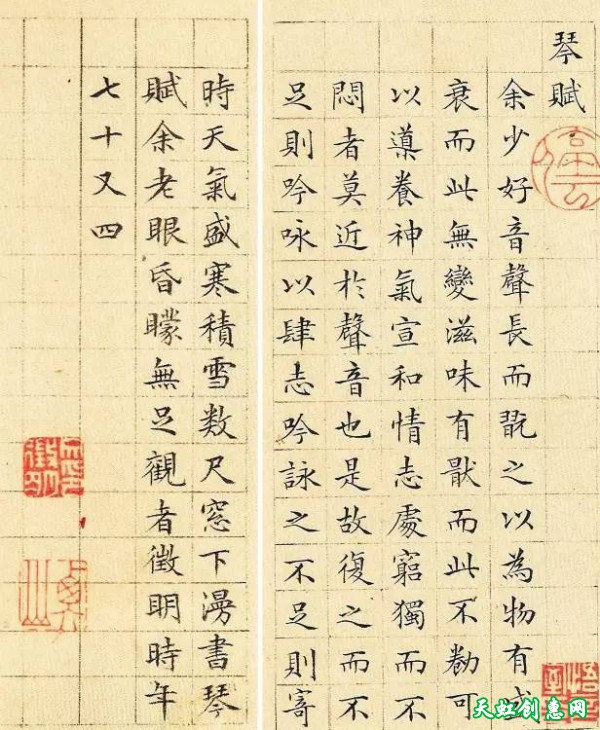 琴賦
余少好音聲長而翫之以為物有盛
衰而此無變滋味有猒而此不勌可
以導養神氣宣和情志處窮獨而不
悶者莫近於聲音也是故復之而不
足則吟咏以肆志吟詠之不足則寄
時天氣盛寒積雪数尺窓下漫書琴
賦余老眼昏矇無足觀者徵明時年
七十又四
天虹创惠网